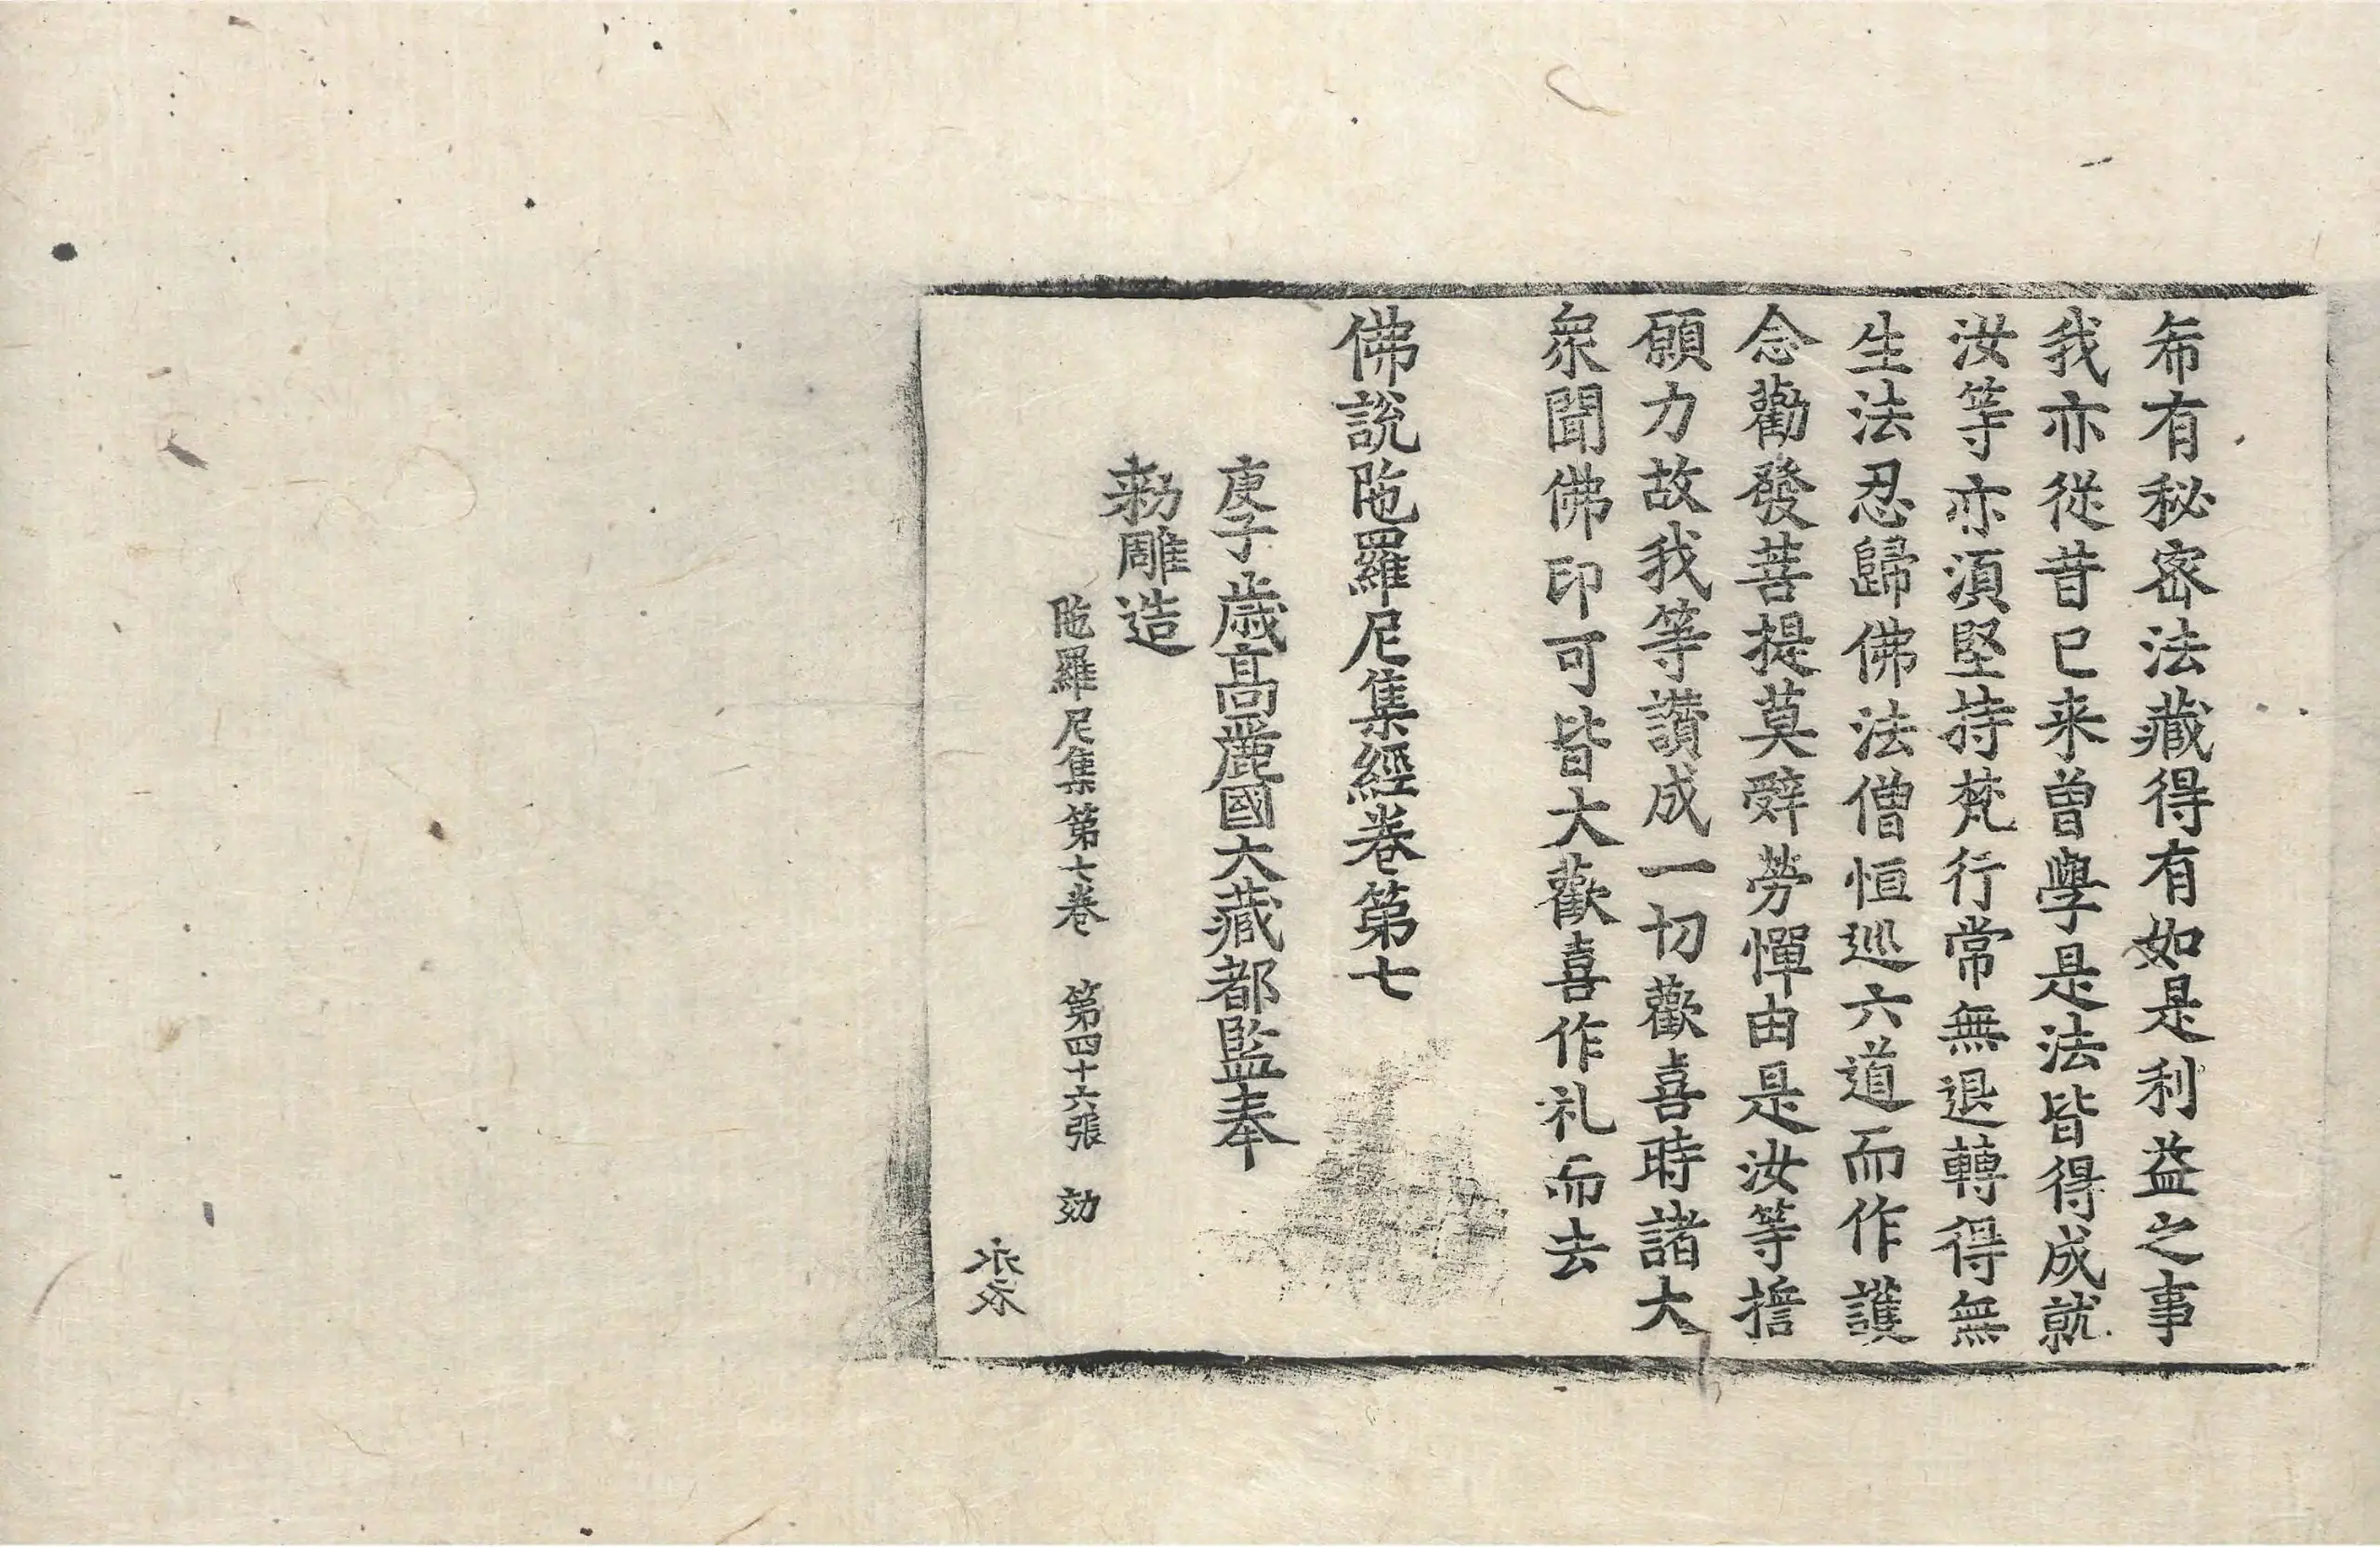 希有秘密法藏得有如是利益之事
我亦從昔已来曾學是法皆得成就
汝等亦湏堅持梵行常無退轉得無
生法忍歸佛法僧恒巡六道而作護
念勸發菩提莫辝勞憚由是汝等擔
願力故我等讃成一切歡喜時諸大
衆聞佛印可皆大歡喜作礼而去
佛說陁羅尼集經卷第七
庚子歳高麗國大藏都監奉
勑雕造
陁羅尼集第七卷 第四十六張 効